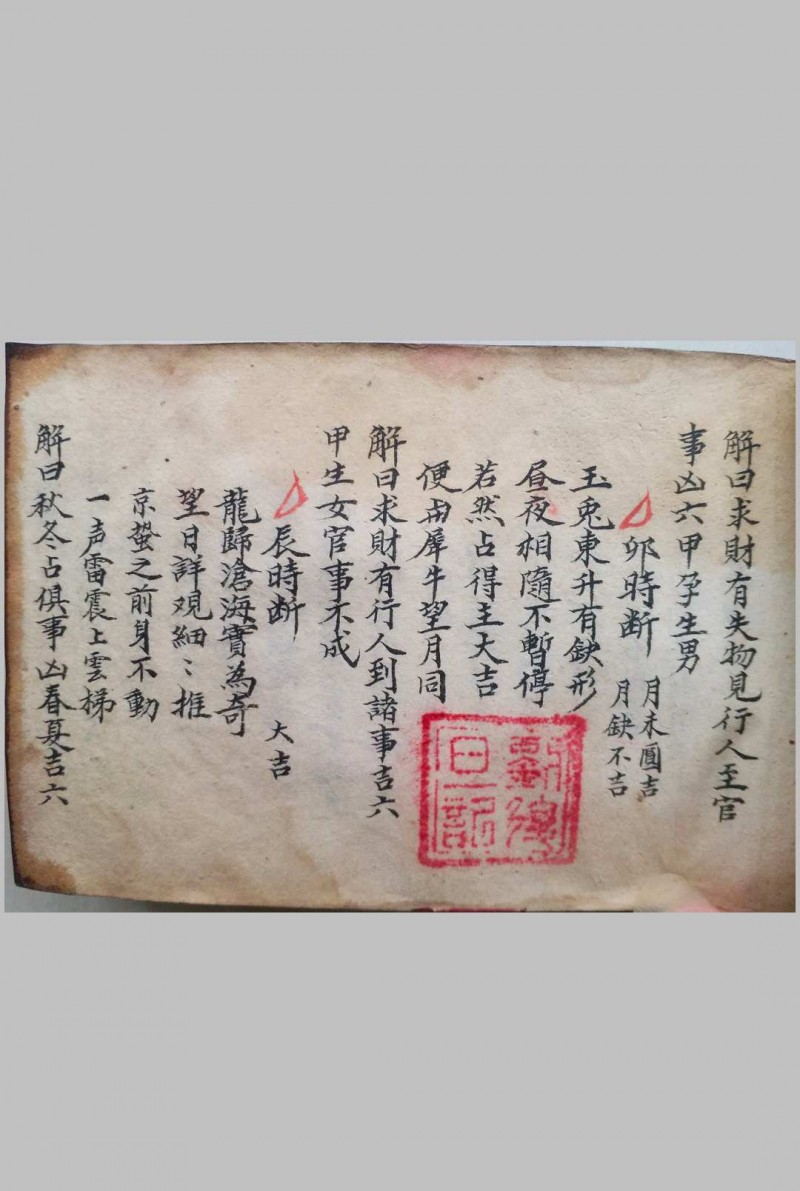 解曰求財有失物見行人至官
事凶六甲孕生男
卯時断
月未圓吉
月缺不吉
玉兎東升有缺形
昼夜相隨不暫停
若然占得主大吉
便是犀牛望月同
解曰求財有行人到諸事吉六
甲生女官事不成
辰時断
大吉
龍歸滄海寔為奇
望日詳观細〻推
京蟄之前身不動
一声雷震上雲梯
解曰秋冬占俱事凶春夏吉六